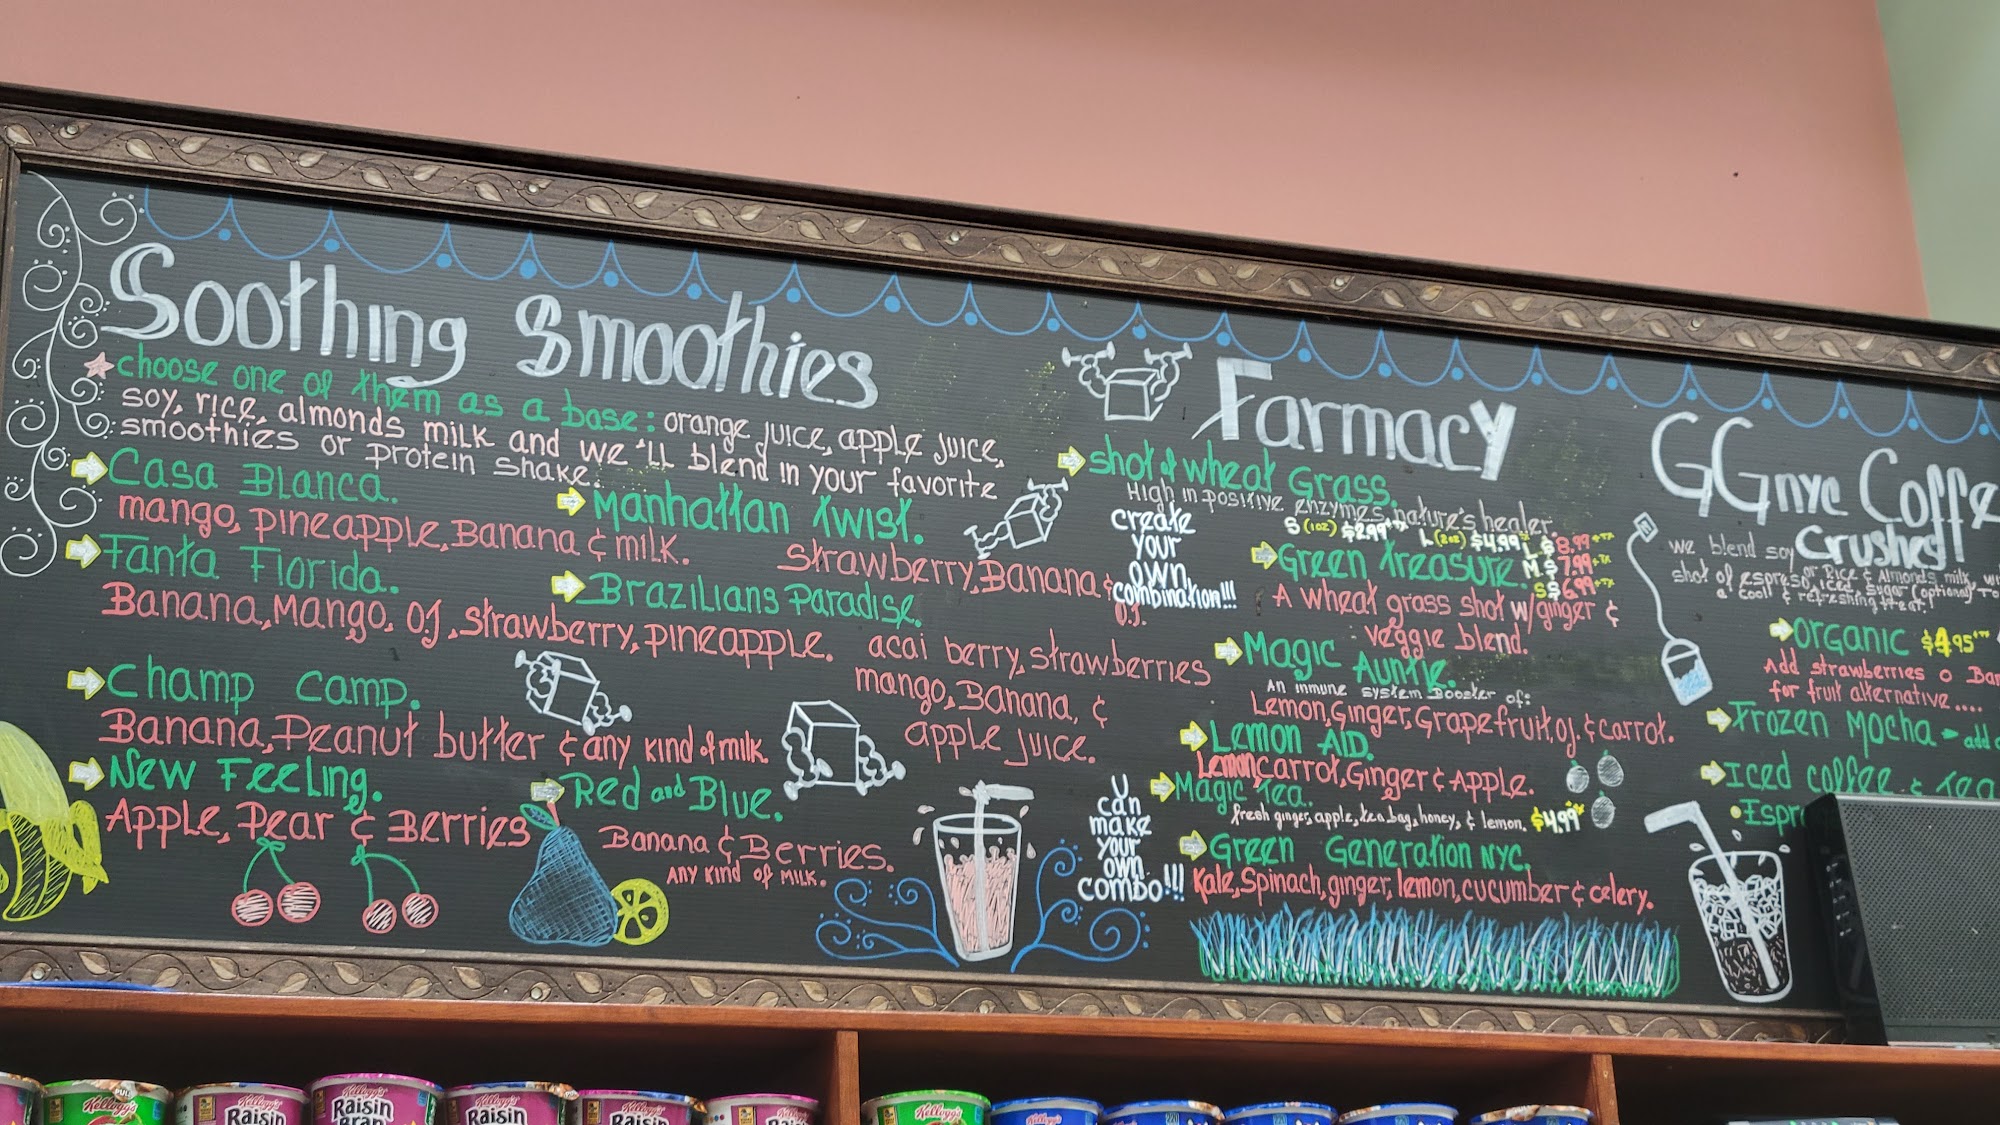 Soothing Smoothies
choose one of them as a base: orange juice, apple juice,
soy, rice, almonds milk and we'll blend in your favorite
smoothies or protein shake.
Casa Blanca.
mango, pineapple, Banana & milk.
Manhattan twist.
Strawberry, Banana &
O.J.
Fanta Florida.
Banana, Mango, OJ, strawberry, pineapple.
Brazilians Paradise.
acai berry, strawberries
mango, Banana, &
apple juice.
Champ Camp.
Banana, Peanut butter & any kind of milk.
New Feeling.
Apple, Pear & Berries
Red and Blue.
Banana & Berries.
Any kind of milk.
Farmacy
shot of wheat Grass.
High in positive enzymes, nature's healer.
S (1oz) $2.99+tx L (2oz) $4.99+tx
create
your
own
combination!!!
Green treasure.
L $8.99+tx
M $7.99+tx
S $6.99+tx
A wheat grass shot w/ginger &
veggie blend.
Magic Auntie.
An inmune system Booster of:
Lemon, Ginger, Grapefruit, oj. & carrot.
Lemon AID.
Lemon, carrot, Ginger & Apple.
Magic Tea.
fresh ginger, apple, tea bag, honey, & lemon. $4.99+tx
U
can
make
your
own
combo!!!
Green Generation NYC.
Kale, Spinach, ginger, lemon, cucumber & celery.
GGnyc Coffe
Crushed!
we blend soy or Rice & Almonds milk, wi
shot of espreso, iced, sugar (optional) to
a cool & refreshing treat.
Organic $4.95+tx
Add strawberries o Ban
for fruit alternative....
Frozen Mocha - add
Iced coffee & Tea
Espr
Kellogg's
Kellogg's
Raisin
Kellogg's
Raisin
Bran
Raisin
Kellogg's
Raisin
Kellogg's
Kellogg's